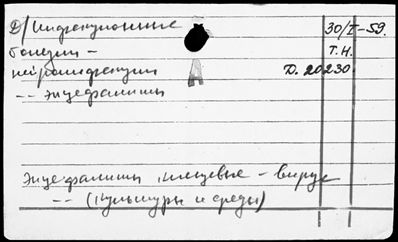 Д/Инфекционные 30/I-59.
болезни - Т.Н.
нейроинфекции Д. 20230
-- энцефалиты
А
Энцефалиты клещевые - вирус
-- (культуры и среды)